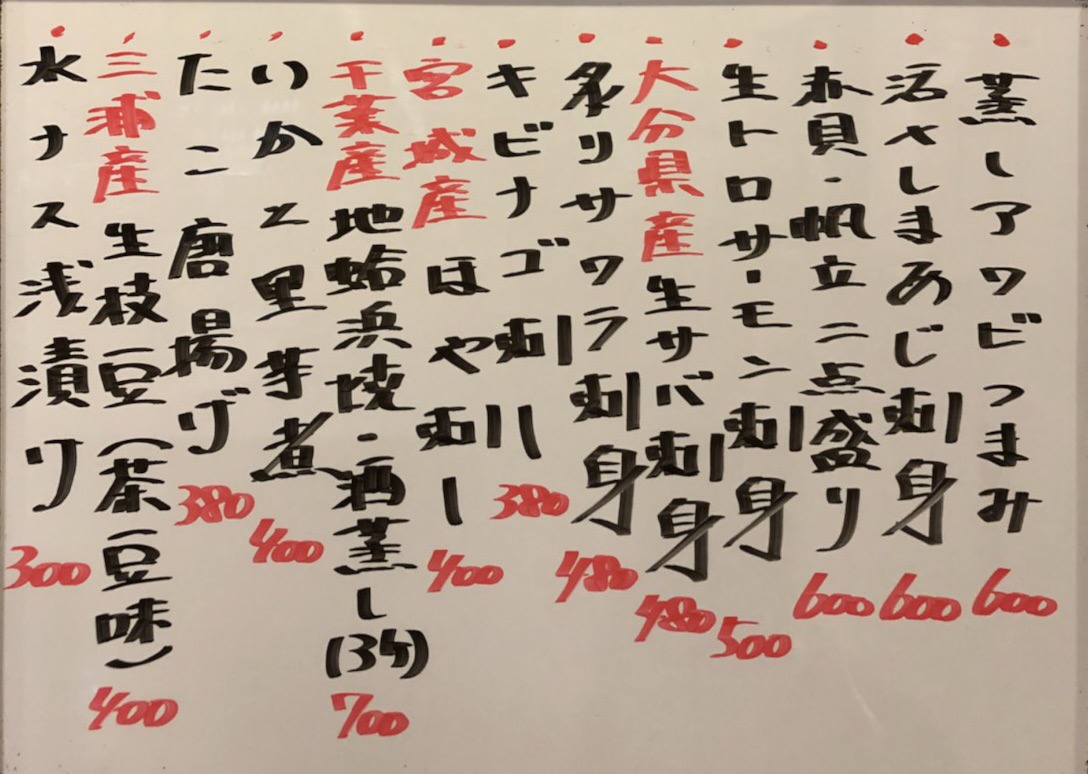 蒸しアワビつまみ 600
活〆しまあじ刺身 600
赤貝・帆立二点盛り 600
生トロサーモン刺身 500
大分県産生サバ刺身 480
炙りサワラ刺身 480
キビナゴ刺し 380
宮城産ほや刺し 400
千葉産地蛤浜焼・酒蒸し(3ケ) 700
いかと里芋煮 400
たこ唐揚げ 380
三浦産生枝豆(茶豆味) 400
水ナス浅漬り 300